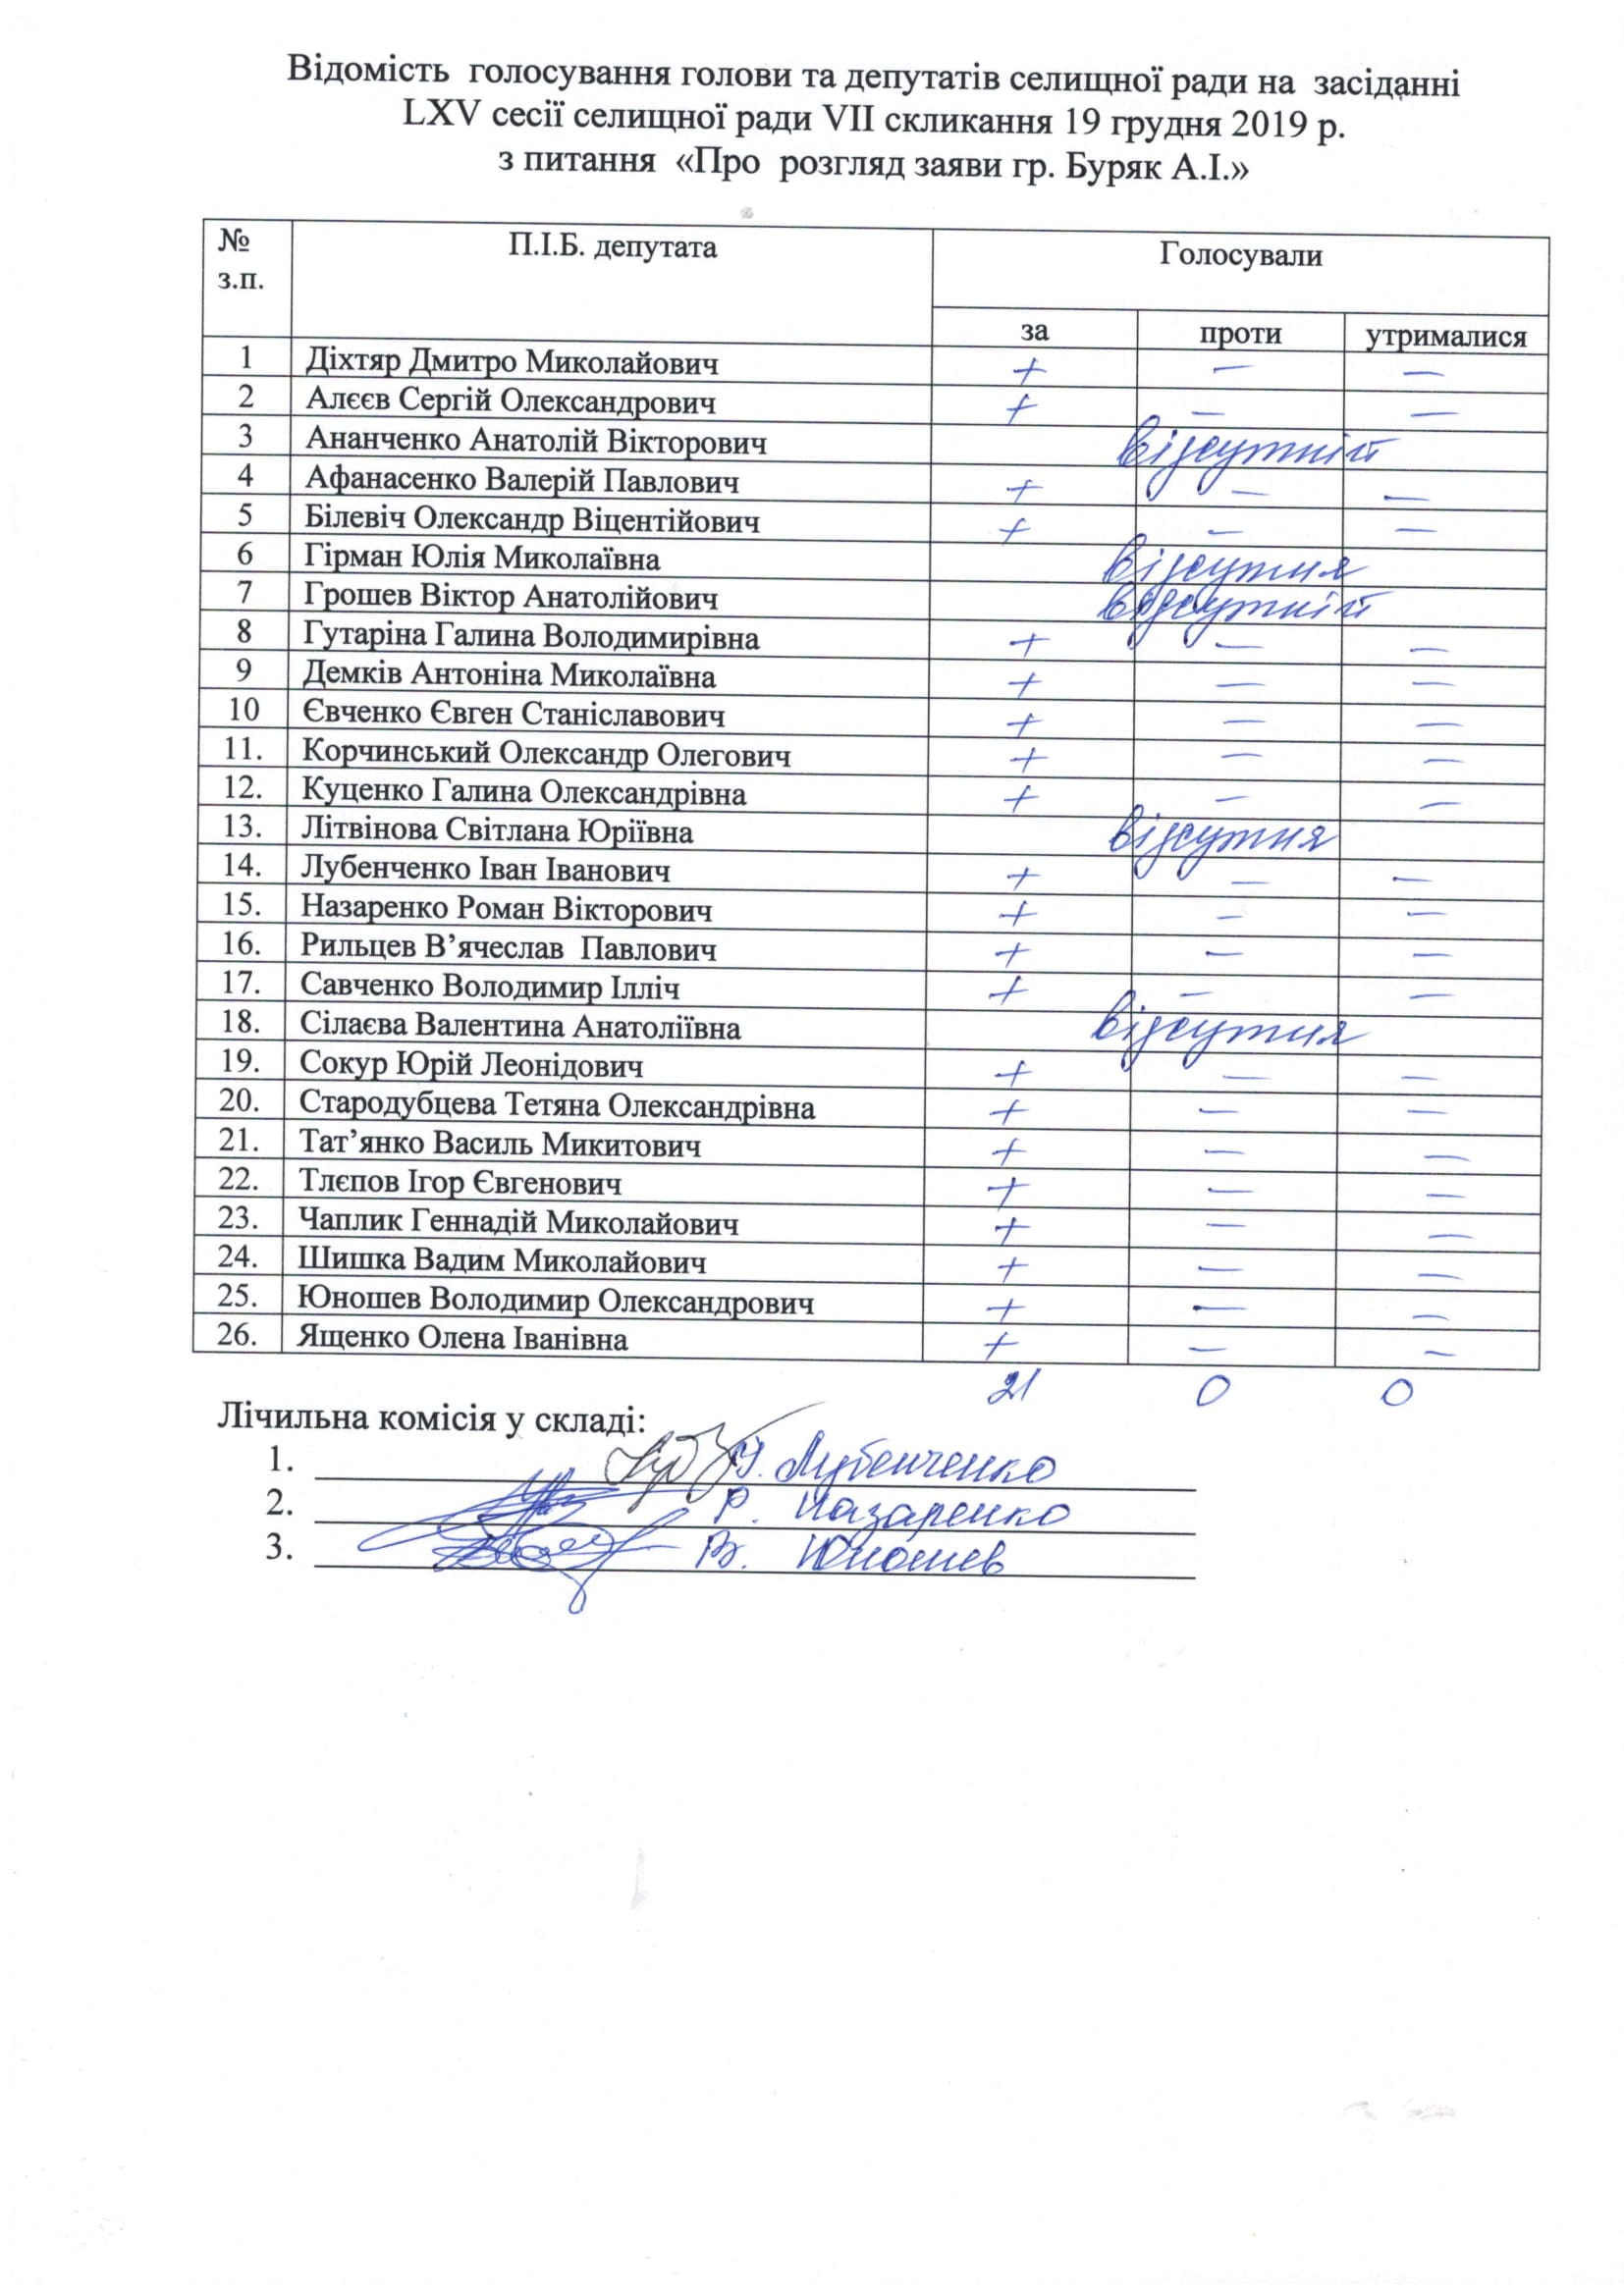 Відомість голосування голови та депутатів селищної ради на засіданні
LXV сесії селищної ради VII скликання 19 грудня 2019 р.
з питання «Про розгляд заяви гр. Буряк А.І.»
№ з.п. П.І.Б. депутата Голосували
за проти утрималися
1 Діхтяр Дмитро Миколайович + — —
2 Алєєв Сергій Олександрович + — —
3 Ананченко Анатолій Вікторович відсутній
4 Афанасенко Валерій Павлович + — —
5 Білевіч Олександр Віцентійович + — —
6 Гірман Юлія Миколаївна відсутня
7 Грошев Віктор Анатолійович відсутній
8 Гутаріна Галина Володимирівна + — —
9 Демків Антоніна Миколаївна + — —
10 Євченко Євген Станіславович + — —
11. Корчинський Олександр Олегович + — —
12. Куценко Галина Олександрівна + — —
13. Літвінова Світлана Юріївна відсутня
14. Лубенченко Іван Іванович + — —
15. Назаренко Роман Вікторович + — —
16. Рильцев В’ячеслав Павлович + — —
17. Савченко Володимир Ілліч + — —
18. Сілаєва Валентина Анатоліївна відсутня
19. Сокур Юрій Леонідович + — —
20. Стародубцева Тетяна Олександрівна + — —
21. Тат’янко Василь Микитович + — —
22. Тлєпов Ігор Євгенович + — —
23. Чаплик Геннадій Миколайович + — —
24. Шишка Вадим Миколайович + — —
25. Юношев Володимир Олександрович + — —
26. Ященко Олена Іванівна + — —
21 0 0
Лічильна комісія у складі:
1. І. Лубенченко
2. Р. Назаренко
3. В. Юношев